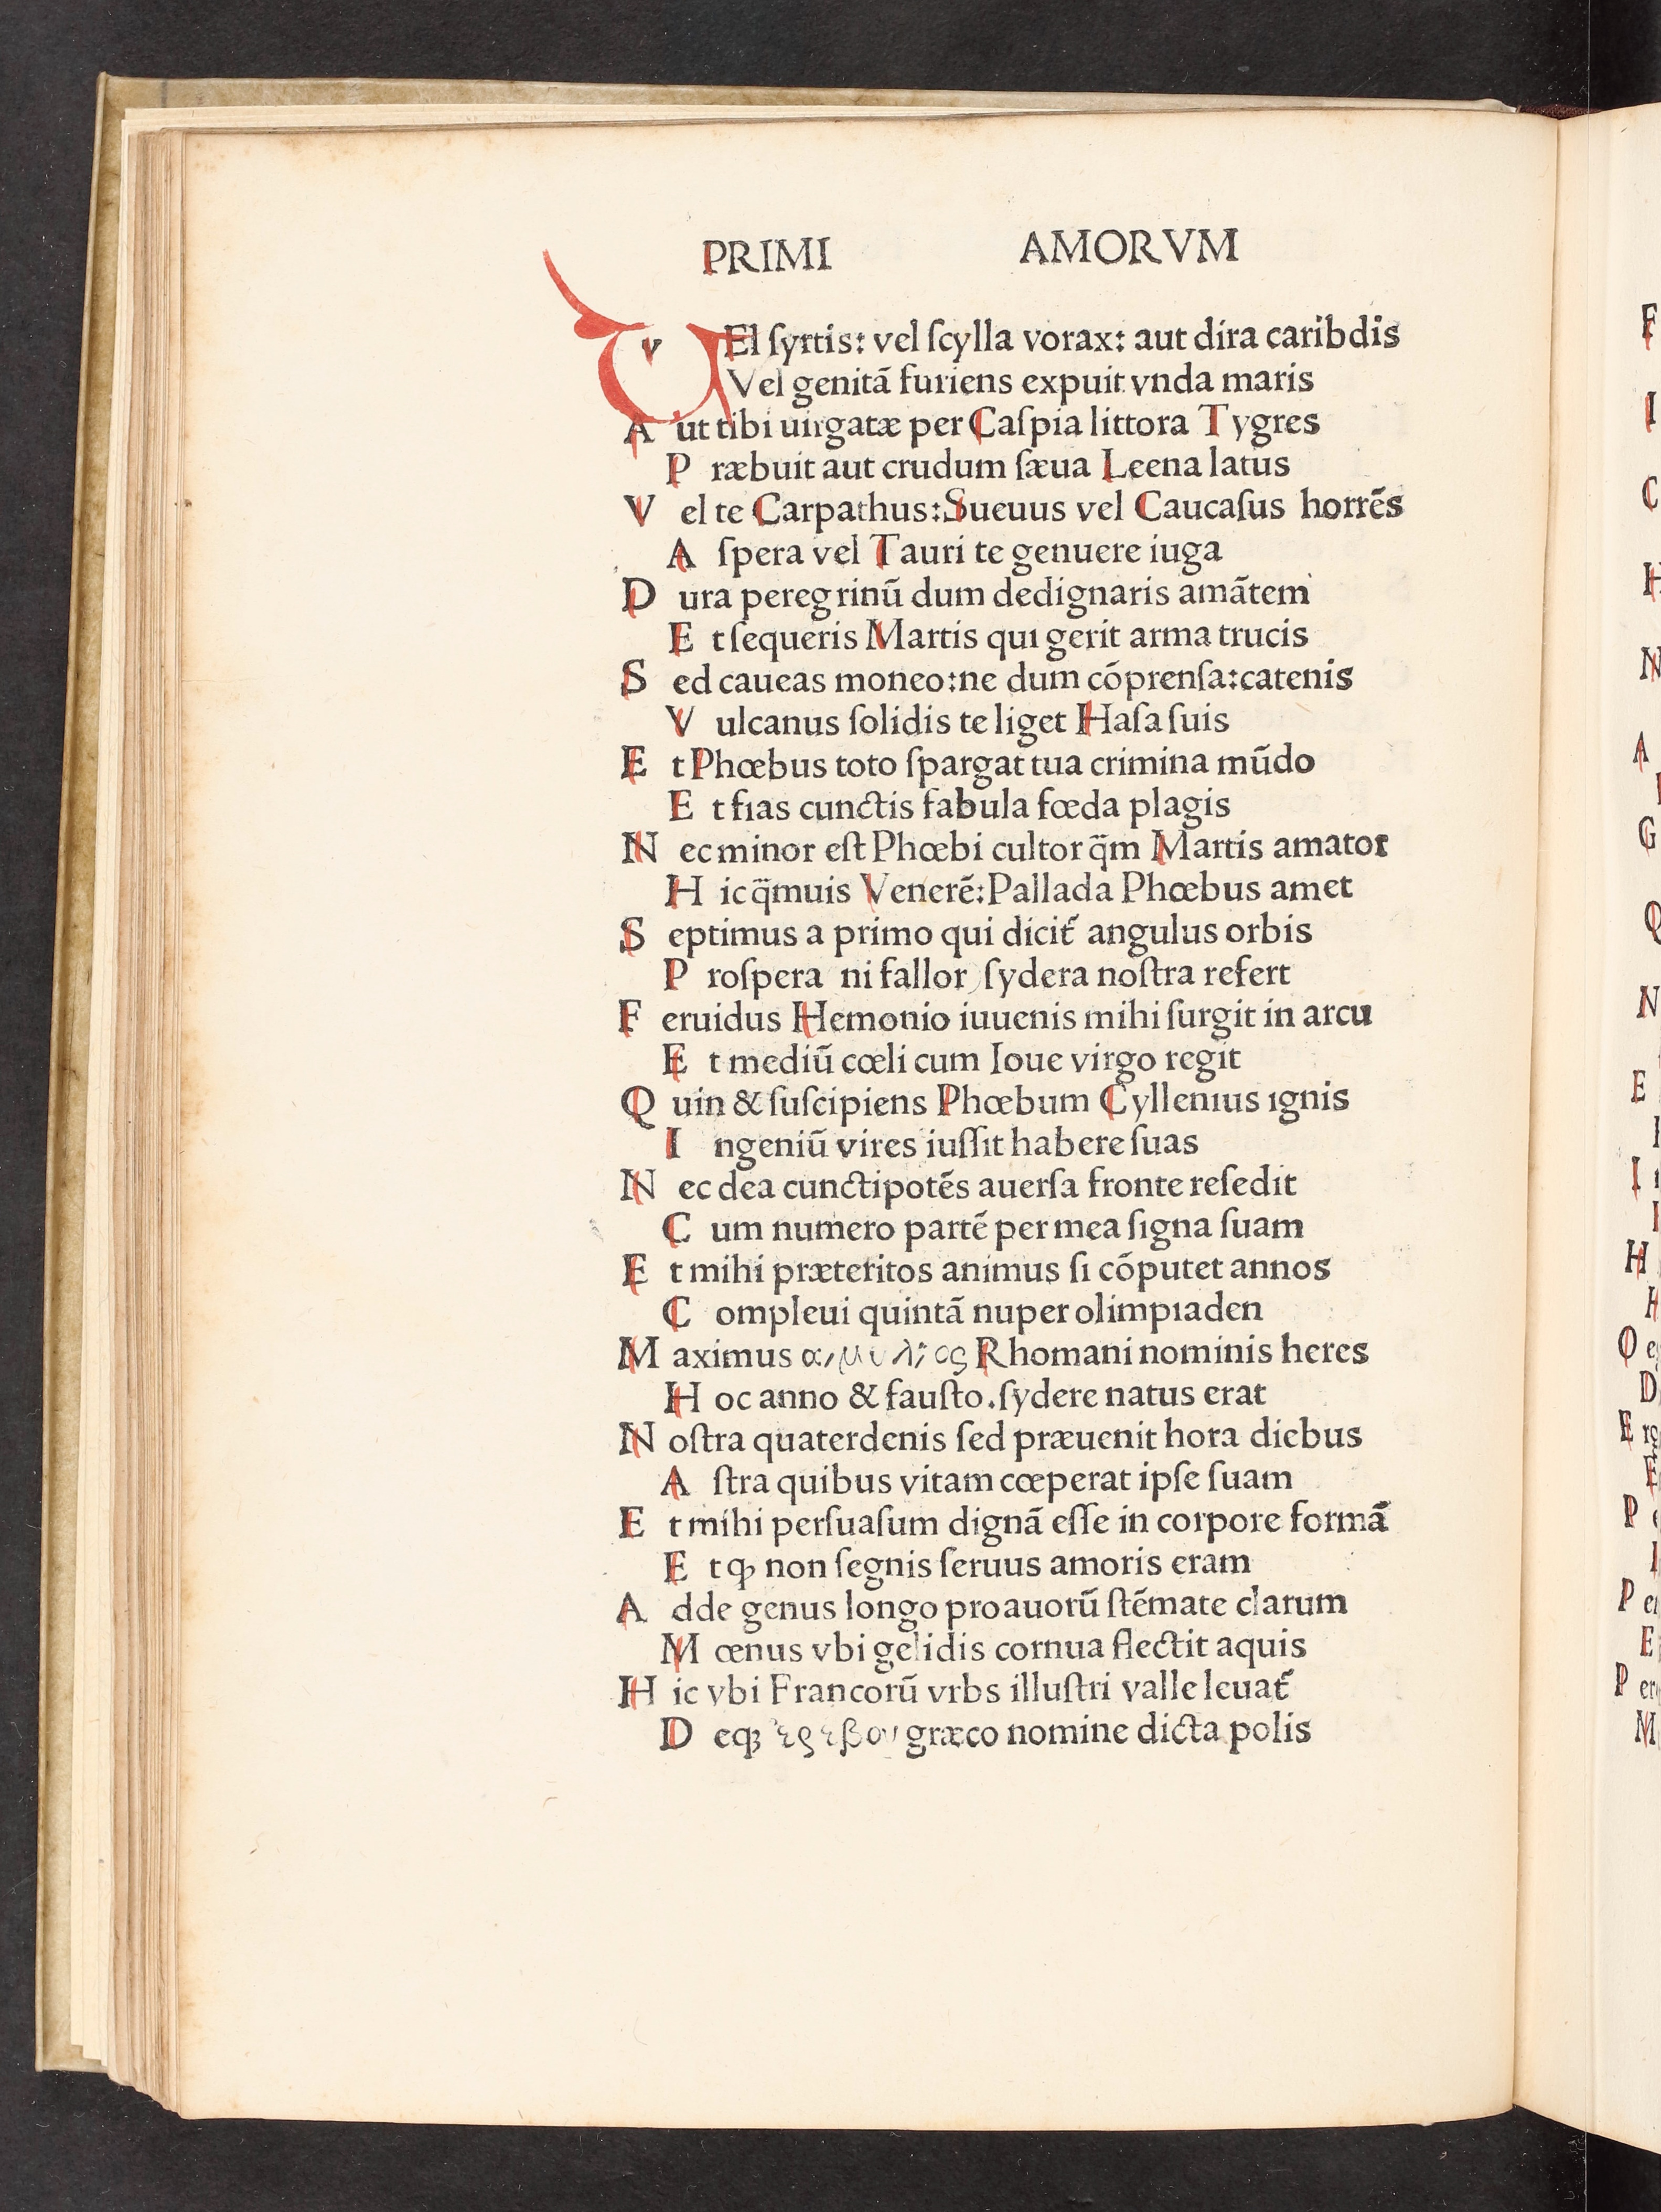 PRIMI AMORVM
vEl ſyrtis: vel ſcylla vorax: aut dira caribdis
Vel genitā furiens expuit vnda maris
Aut tibi uirgatæ per Caſpia littora Tygres
Præbuit aut crudum ſæua Leena latus
Vel te Carpathus: Sueuus vel Caucaſus horrēs
Aſpera vel Tauri te genuere iuga
Dura peregrinū dum dedignaris amātem
Et ſequeris Martis qui gerit arma trucis
Sed caueas moneo: ne dum cōprenſa: catenis
Vulcanus ſolidis te liget Haſa ſuis
Et Phœbus toto ſpargat tua crimina mūdo
Et fias cunctis fabula fœda plagis
Nec minor eſt Phœbi cultor q̄m Martis amator
Hic q̄muis Venerē: Pallada Phœbus amet
Septimus a primo qui dicit̄ angulus orbis
Proſpera ni fallor ſydera noſtra refert
Feruidus Hemonio iuuenis mihi ſurgit in arcu
Et mediū cœli cum Ioue virgo regit
Quin & ſuſcipiens Phœbum Cyllenius ignis
Ingeniū vires iuſſit habere ſuas
Nec dea cunctipotēs auerſa fronte reſedit
Cum numero partē per mea ſigna ſuam
Et mihi præteritos animus ſi cōputet annos
Compleui quintā nuper olimpiaden
Maximus αιμυλιος Rhomani nominis heres
Hoc anno & fauſto. ſydere natus erat
Noſtra quaterdenis ſed præuenit hora diebus
Aſtra quibus vitam cœperat ipſe ſuam
Et mihi perſuaſum dignā eſſe in corpore formā
Et ꝙ non ſegnis ſeruus amoris eram
Adde genus longo proauorū ſtēmate clarum
Mœnus vbi gelidis cornua flectit aquis
Hic vbi Francorū vrbs illuſtri valle leuat̄
Deqꝫ ἐρεβου græco nomine dicta polis